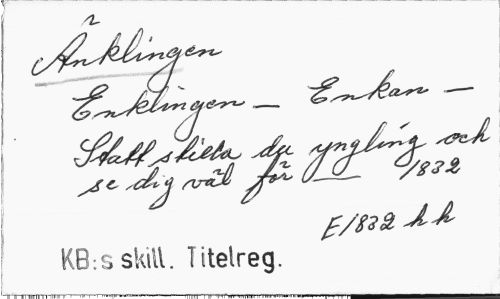 Änklingen
Enklingen — Enkan —
Statt skilla du yngling och
se dig väl för — 1832
E1832 h h
KB:s skill. Titelreg.